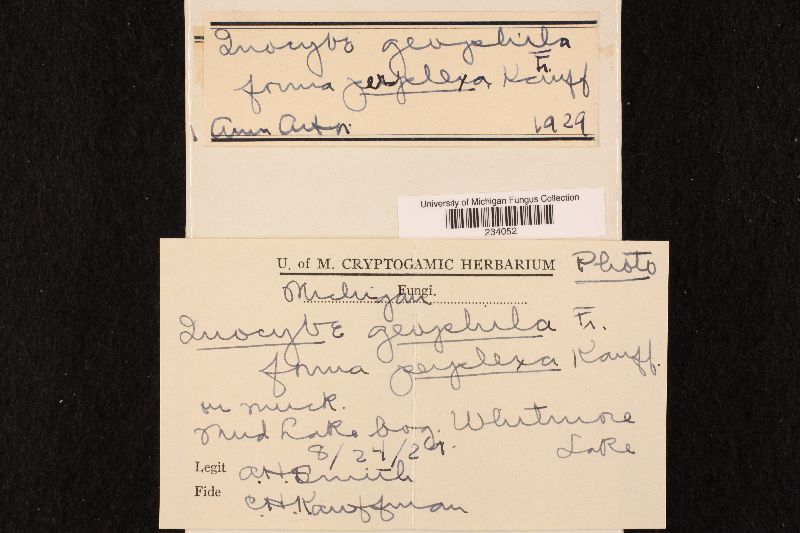 Inocybe geophila
Fr.
forma perplexa Kauff
Ann Arbor. 1929
University of Michigan Fungus Collection
234052
U. of M. CRYPTOGAMIC HERBARIUM Photo
Michigan Fungi.
Inocybe geophila Fr.
forma perplexa Kauff.
on muck.
Mud Lake bog. Whitmore
Lake
8/24/29.
Legit A.H. Smith
Fide C.H. Kauffman